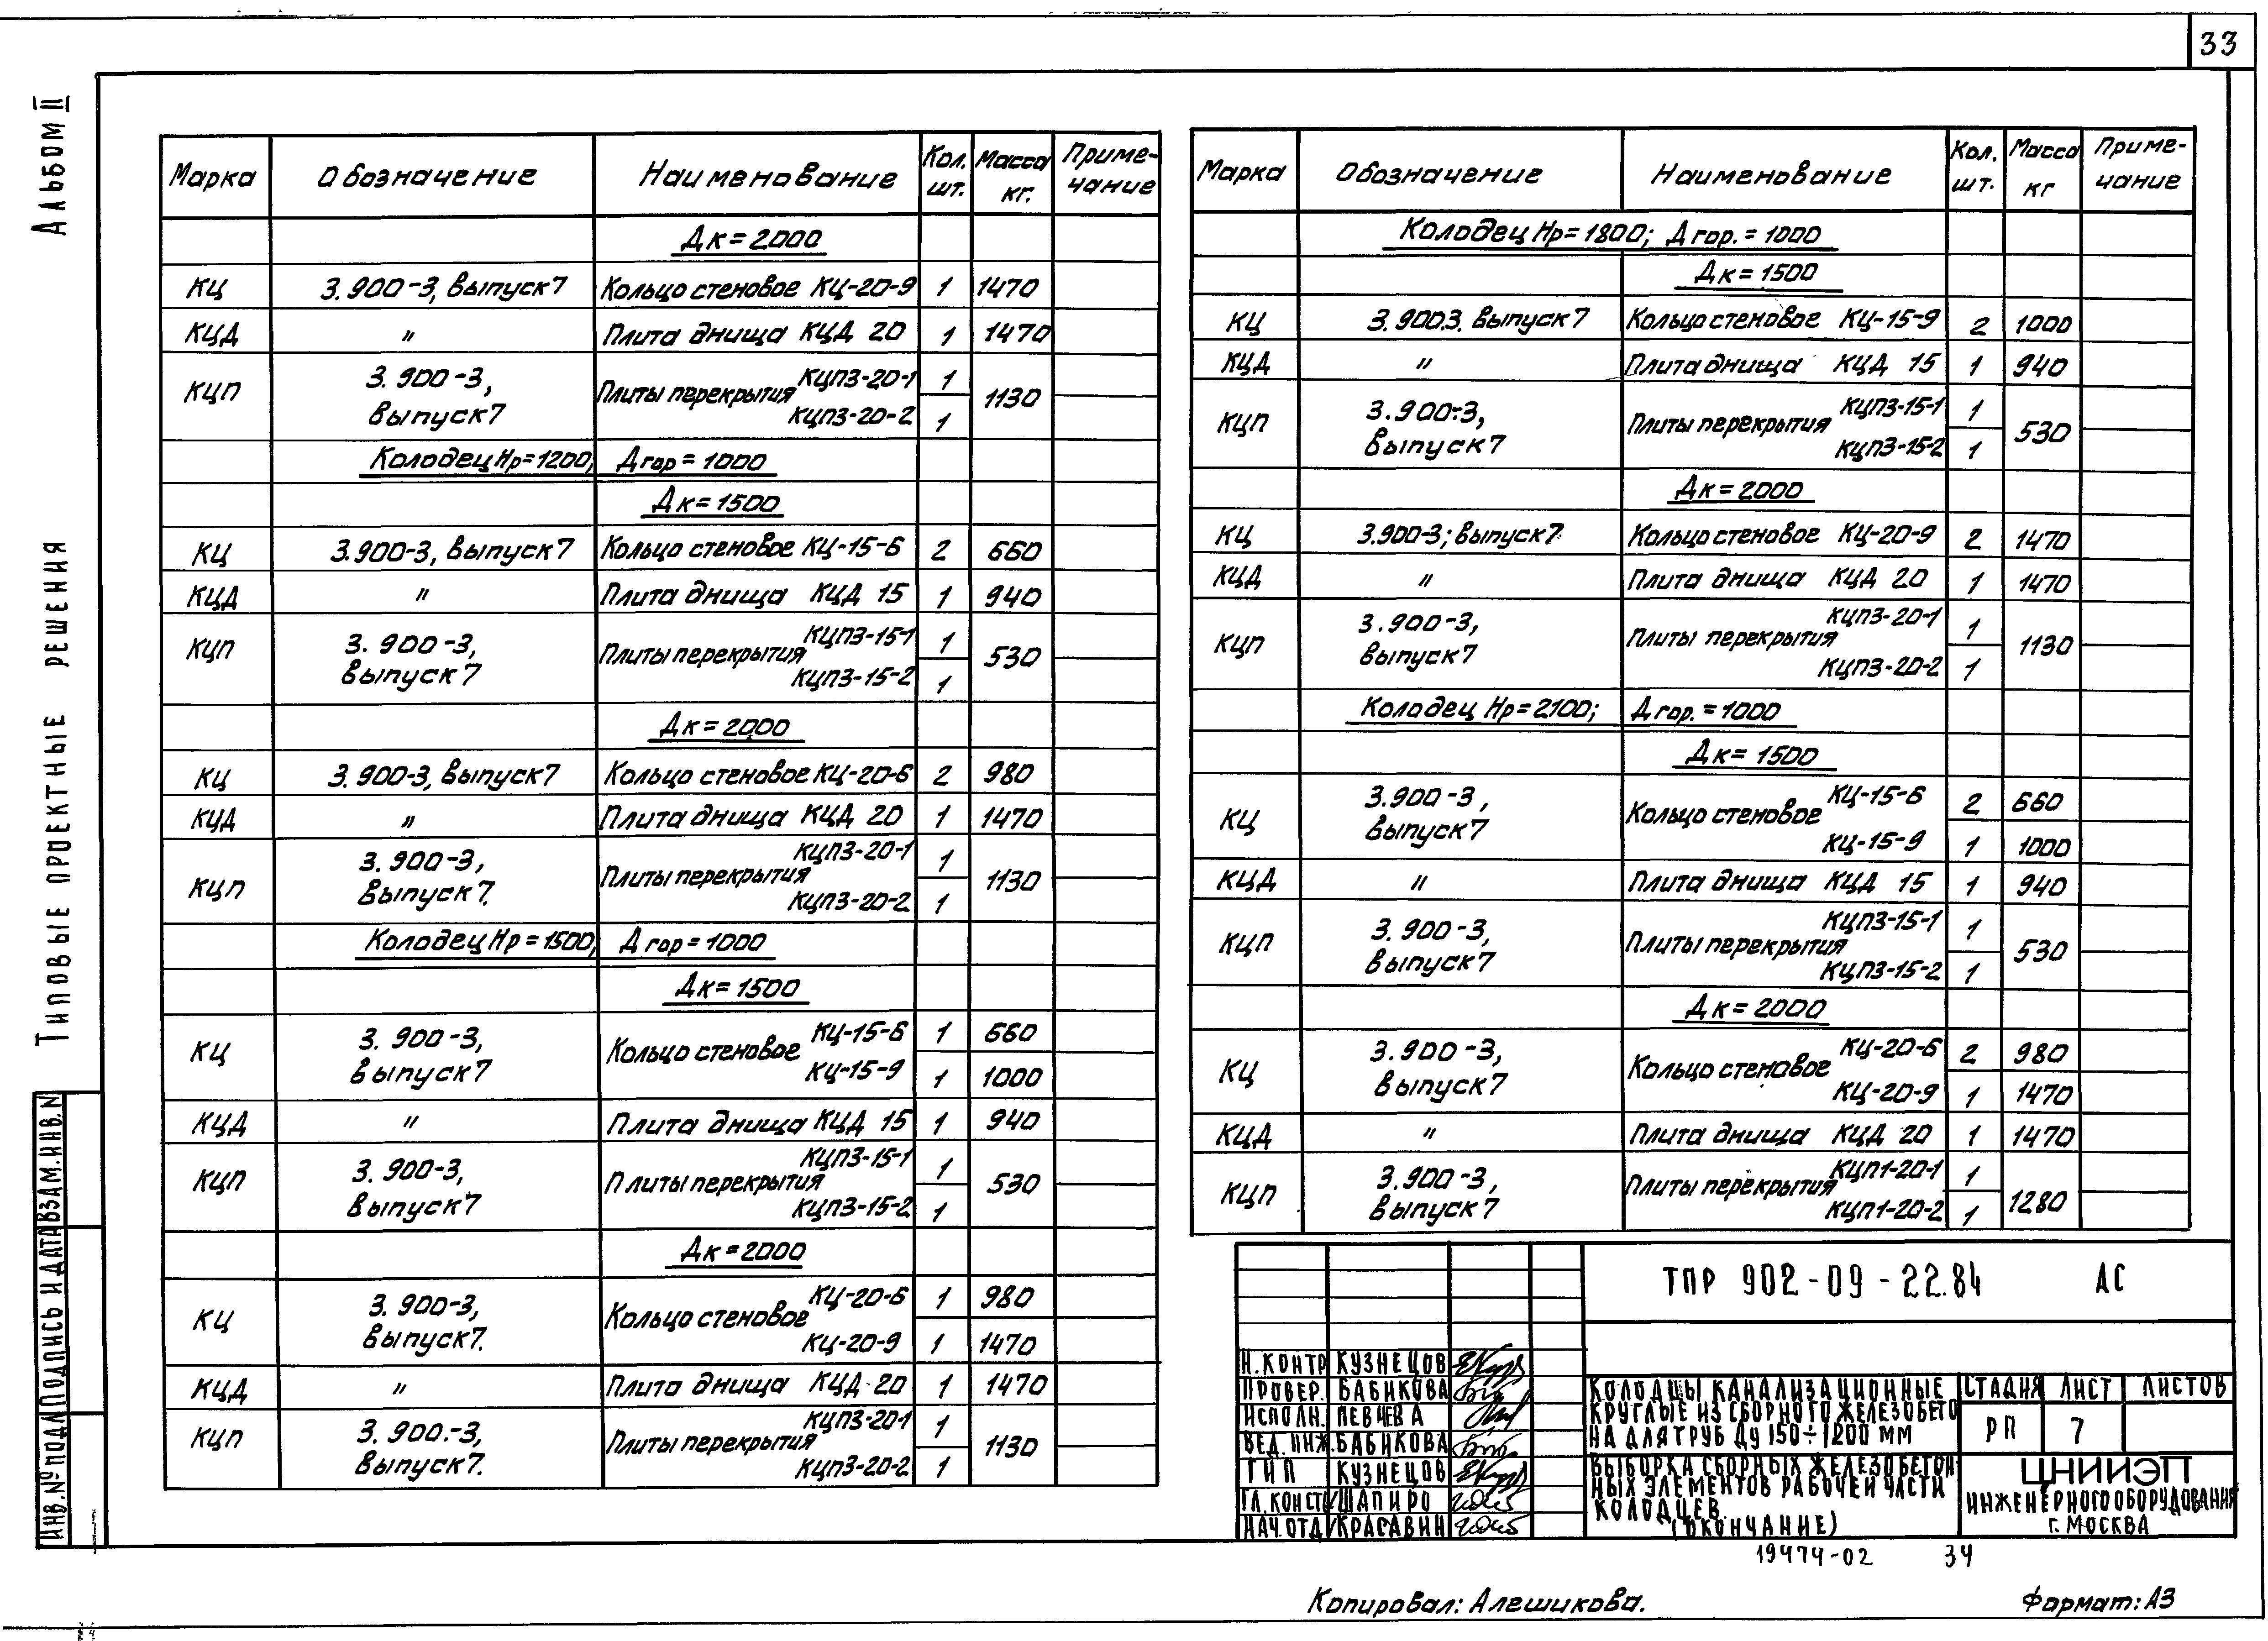 33
Альбом II
Типовые проектные решения
Инв.№подл Подпись и дата Взам.инв.N
Марка Обозначение Наименование Кол. шт. Масса кг. Приме-чание
Дк=2000
КЦ 3.900-3, выпуск7 Кольцо стеновое КЦ-20-9 1 1470
КЦД " Плита днища КЦД 20 1 1470
КЦП 3.900-3, выпуск7 Плиты перекрытия КЦП3-20-1 1 1130
КЦП3-20-2 1
Колодец Нр=1200; Дгор=1000
Дк=1500
КЦ 3.900-3, выпуск7 Кольцо стеновое КЦ-15-6 2 660
КЦД " Плита днища КЦД 15 1 940
КЦП 3.900-3, выпуск7 Плиты перекрытия КЦП3-15-1 1 530
КЦП3-15-2 1
Дк=2000
КЦ 3.900-3, выпуск7 Кольцо стеновое КЦ-20-6 2 980
КЦД " Плита днища КЦД 20 1 1470
КЦП 3.900-3, выпуск7. Плиты перекрытия КЦП3-20-1 1 1130
КЦП3-20-2 1
Колодец Нр=1500; Дгор=1000
Дк=1500
КЦ 3.900-3, выпуск7 Кольцо стеновое КЦ-15-6 1 660
КЦ-15-9 1 1000
КЦД " Плита днища КЦД 15 1 940
КЦП 3.900-3, выпуск7 Плиты перекрытия КЦП3-15-1 1 530
КЦП3-15-2 1
Дк=2000
КЦ 3.900-3, выпуск7. Кольцо стеновое КЦ-20-6 1 980
КЦ-20-9 1 1470
КЦД " Плита днища КЦД-20 1 1470
КЦП 3.900.-3, выпуск7. Плиты перекрытия КЦП3-20-1 1 1130
КЦП3-20-2 1
Марка Обозначение Наименование Кол. шт. Масса кг Приме-чание
Колодец Нр=1800; Дгор.=1000
Дк=1500
КЦ 3.900.3. выпуск7 Кольцо стеновое КЦ-15-9 2 1000
КЦД " Плита днища КЦД 15 1 940
КЦП 3.900-3, выпуск7 Плиты перекрытия КЦП3-15-1 1 530
КЦП3-15-2 1
Дк=2000
КЦ 3.900-3; выпуск7 Кольцо стеновое КЦ-20-9 2 1470
КЦД " Плита днища КЦД 20 1 1470
КЦП 3.900-3, выпуск7 Плиты перекрытия КЦП3-20-1 1 1130
КЦП3-20-2 1
Колодец Нр=2100; Дгор.=1000
Дк=1500
КЦ 3.900-3, выпуск7 Кольцо стеновое КЦ-15-6 2 660
КЦ-15-9 1 1000
КЦД " Плита днища КЦД 15 1 940
КЦП 3.900-3, выпуск7 Плиты перекрытия КЦП3-15-1 1 530
КЦП3-15-2 1
Дк=2000
КЦ 3.900-3, выпуск7 Кольцо стеновое КЦ-20-6 2 980
КЦ-20-9 1 1470
КЦД " Плита днища КЦД 20 1 1470
КЦП 3.900-3, выпуск7 Плиты перекрытия КЦП1-20-1 1 1280
КЦП1-20-2 1
ТПР 902-09-22.84 АС
Н.контр Кузнецов
Провер. Бабикова
Исполн. Певчева
Вед.инж. Бабикова
ГИП Кузнецов
Гл.конст Шапиро
Нач.отд Красавин
Колодцы канализационные
круглые из сборного железобето
на для труб Ду 150÷1200 мм
Выборка сборных железобетон
ных элементов рабочей части
колодцев.
(окончание)
Стадия Лист Листов
РП 7
ЦНИИЭП
инженерного оборудования
г. Москва
19474-02 34
Копировал: Алешикова. Формат: А3